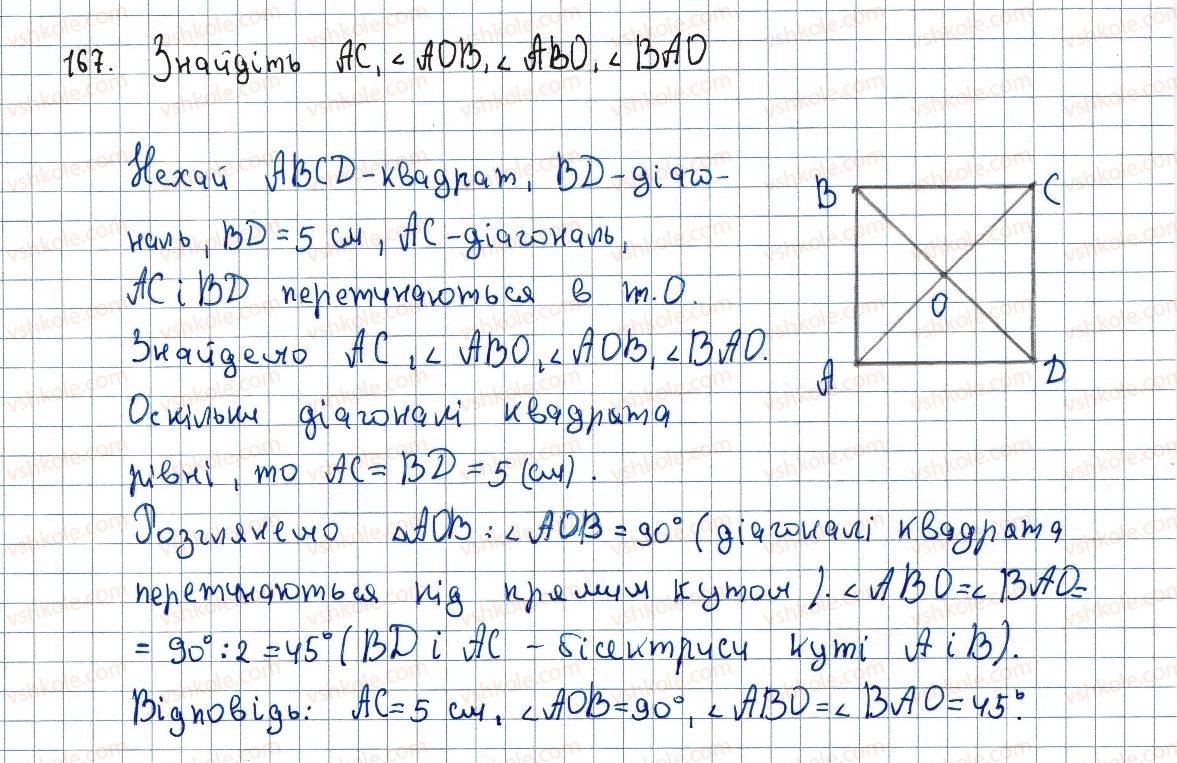 167. Знайдіть AC, < AOB, < ABO, < BAO
Нехай ABCD-квадрат, BD-діаго-
наль, BD = 5 см, AC-діагональ,
AC і BD перетинаються в т.О.
Знайдемо AC, < ABO, < AOB, < BAO.
Оскільки діагоналі квадрата
рівні, то AC = BD = 5 (см).
Розглянемо △AOB: < AOB = 90° (діагоналі квадрата
перетинаються під прямим кутом). < ABO = < BAO =
= 90° : 2 = 45° (BD і AC - бісектриси куті A і B).
Відповідь: AC = 5 см, < AOB = 90°, < ABO = < BAO = 45°.
B C
O
A D
vshkole.com